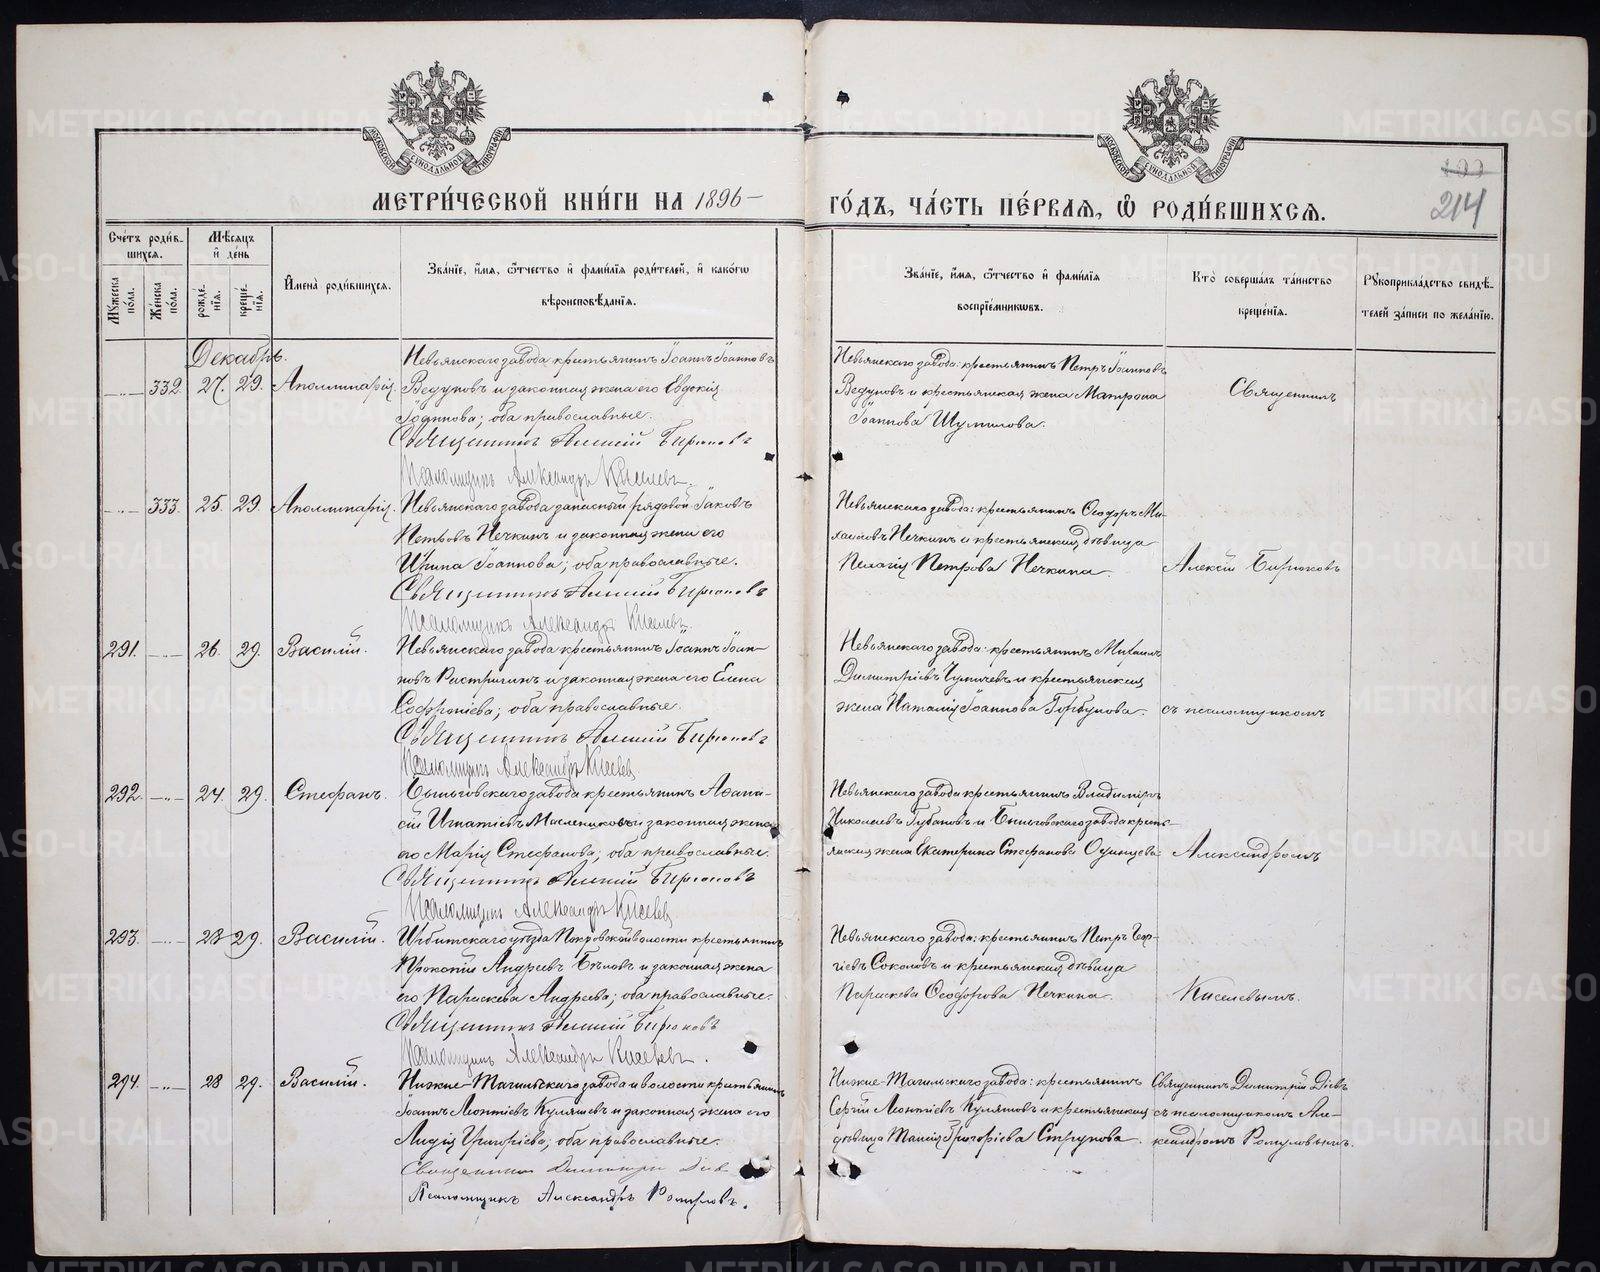 МЕТРИ́ЧЕСКОЙ КНИ́ГИ НА 1896 –
ГО́ДЪ, ЧА́СТЬ ПЕ́РВАЯ, Ѽ РОДИ́ВШИХСЯ.
214
Сче́тъ роди́в-
шихся.
Мѣ́сяцъ
и҆ де́нь
Му́жеска по́ла.
Же́нска по́ла.
рожде́-
нїя.
креще́-
нїя.
И҆мена̀ роди́вшихся.
Зва́нїе, и҆́мя, ѻ҆́тчество и҆ фами́лїя роди́телей, и҆ како́гѡ
вѣроисповѣ́данїя.
Зва́нїе, и҆́мя, ѻ҆́тчество и҆ фами́лїя
воспрїе́мникѡвъ.
Кто̀ соверша́лъ та́инство
креще́нїя.
Рꙋкоприкла́дство свидѣ́-
телей за́писи по жела́нїю.
Декабрь.
332. 27. 29. Аполлинарія. Невьянскаго завода крестьянинъ Іоаннъ Іоанновъ
Ведуновъ и законная жена его Евдокія
Іоаннова; оба православные.
Священникъ Алексій Бирюковъ
Псаломщикъ Александръ Киселевъ.
Невьянскаго завода: крестьянинъ Петръ Іоанновъ
Ведуновъ и крестьянская жена Матрона
Іоаннова Шумилова.
Священникъ
333. 25. 29. Аполлинарія. Невьянскаго завода запасный рядовой Іаковъ
Петровъ Нечкинъ и законная жена его
Ирина Іоаннова; оба православные.
Священникъ Алексій Бирюковъ
Псаломщикъ Александръ Киселевъ.
Невьянскаго завода: крестьянинъ Ѳеодоръ Ми-
хаиловъ Нечкинъ и крестьянская дѣвица
Пелагія Петрова Нечкина.
Алексій Бирюковъ
291. 26. 29. Василій. Невьянскаго завода крестьянинъ Іоаннъ Іоан-
новъ Растригинъ и законная жена его Елена
Софроніева; оба православные.
Священникъ Алексій Бирюковъ
Псаломщикъ Александръ Киселевъ
Невьянскаго завода: крестьянинъ Михаилъ
Димитріевъ и крестьянская
жена Наталія Іоаннова Горбунова.
съ псаломщикомъ
292. 24. 29. Стефанъ. Быньговскаго завода крестьянинъ Аѳана-
сій Игнатіевъ Маслениковъ и законная жена
его Марія Стефанова; оба православные.
Священникъ Алексій Бирюковъ
Псаломщикъ Александръ Киселевъ
Невьянскаго завода крестьянинъ Владиміръ
Николаевъ Губановъ и Быньговскаго завода кресть-
янская жена Екатерина Стефанова Одинцева.
Александромъ
293. 28 29. Василій. Ирбитскаго уѣзда Покровской волости крестьянинъ
Прокопій Андреевъ Бѣловъ и законная жена
его Параскева Андреева; оба православные.
Священникъ Алексій Бирюковъ
Псаломщикъ Александръ Киселевъ.
Невьянскаго завода: крестьянинъ Петръ Геор-
гіевъ Соколовъ и крестьянская дѣвица
Параскева Ѳеодорова Нечкина.
Киселевымъ.
294. 28 29. Василій. Нижне-Тагильскаго завода и волости крестьянинъ
Іоаннъ Леонтіевъ Куляшевъ и законная жена его
Лидія Григоріева; оба православные.
Священникъ Димитрій Діевъ
Псаломщикъ Александръ Ромуловъ.
Нижне-Тагильскаго завода: крестьянинъ
Сергій Леонтіевъ Куляшовъ и крестьянская
дѣвица Таисія Григоріева Стругова.
Священникъ Димитрій Діевъ
съ псаломщикомъ Але-
ксандромъ Ромуловымъ.
METRIKI.GASO-URAL.RU